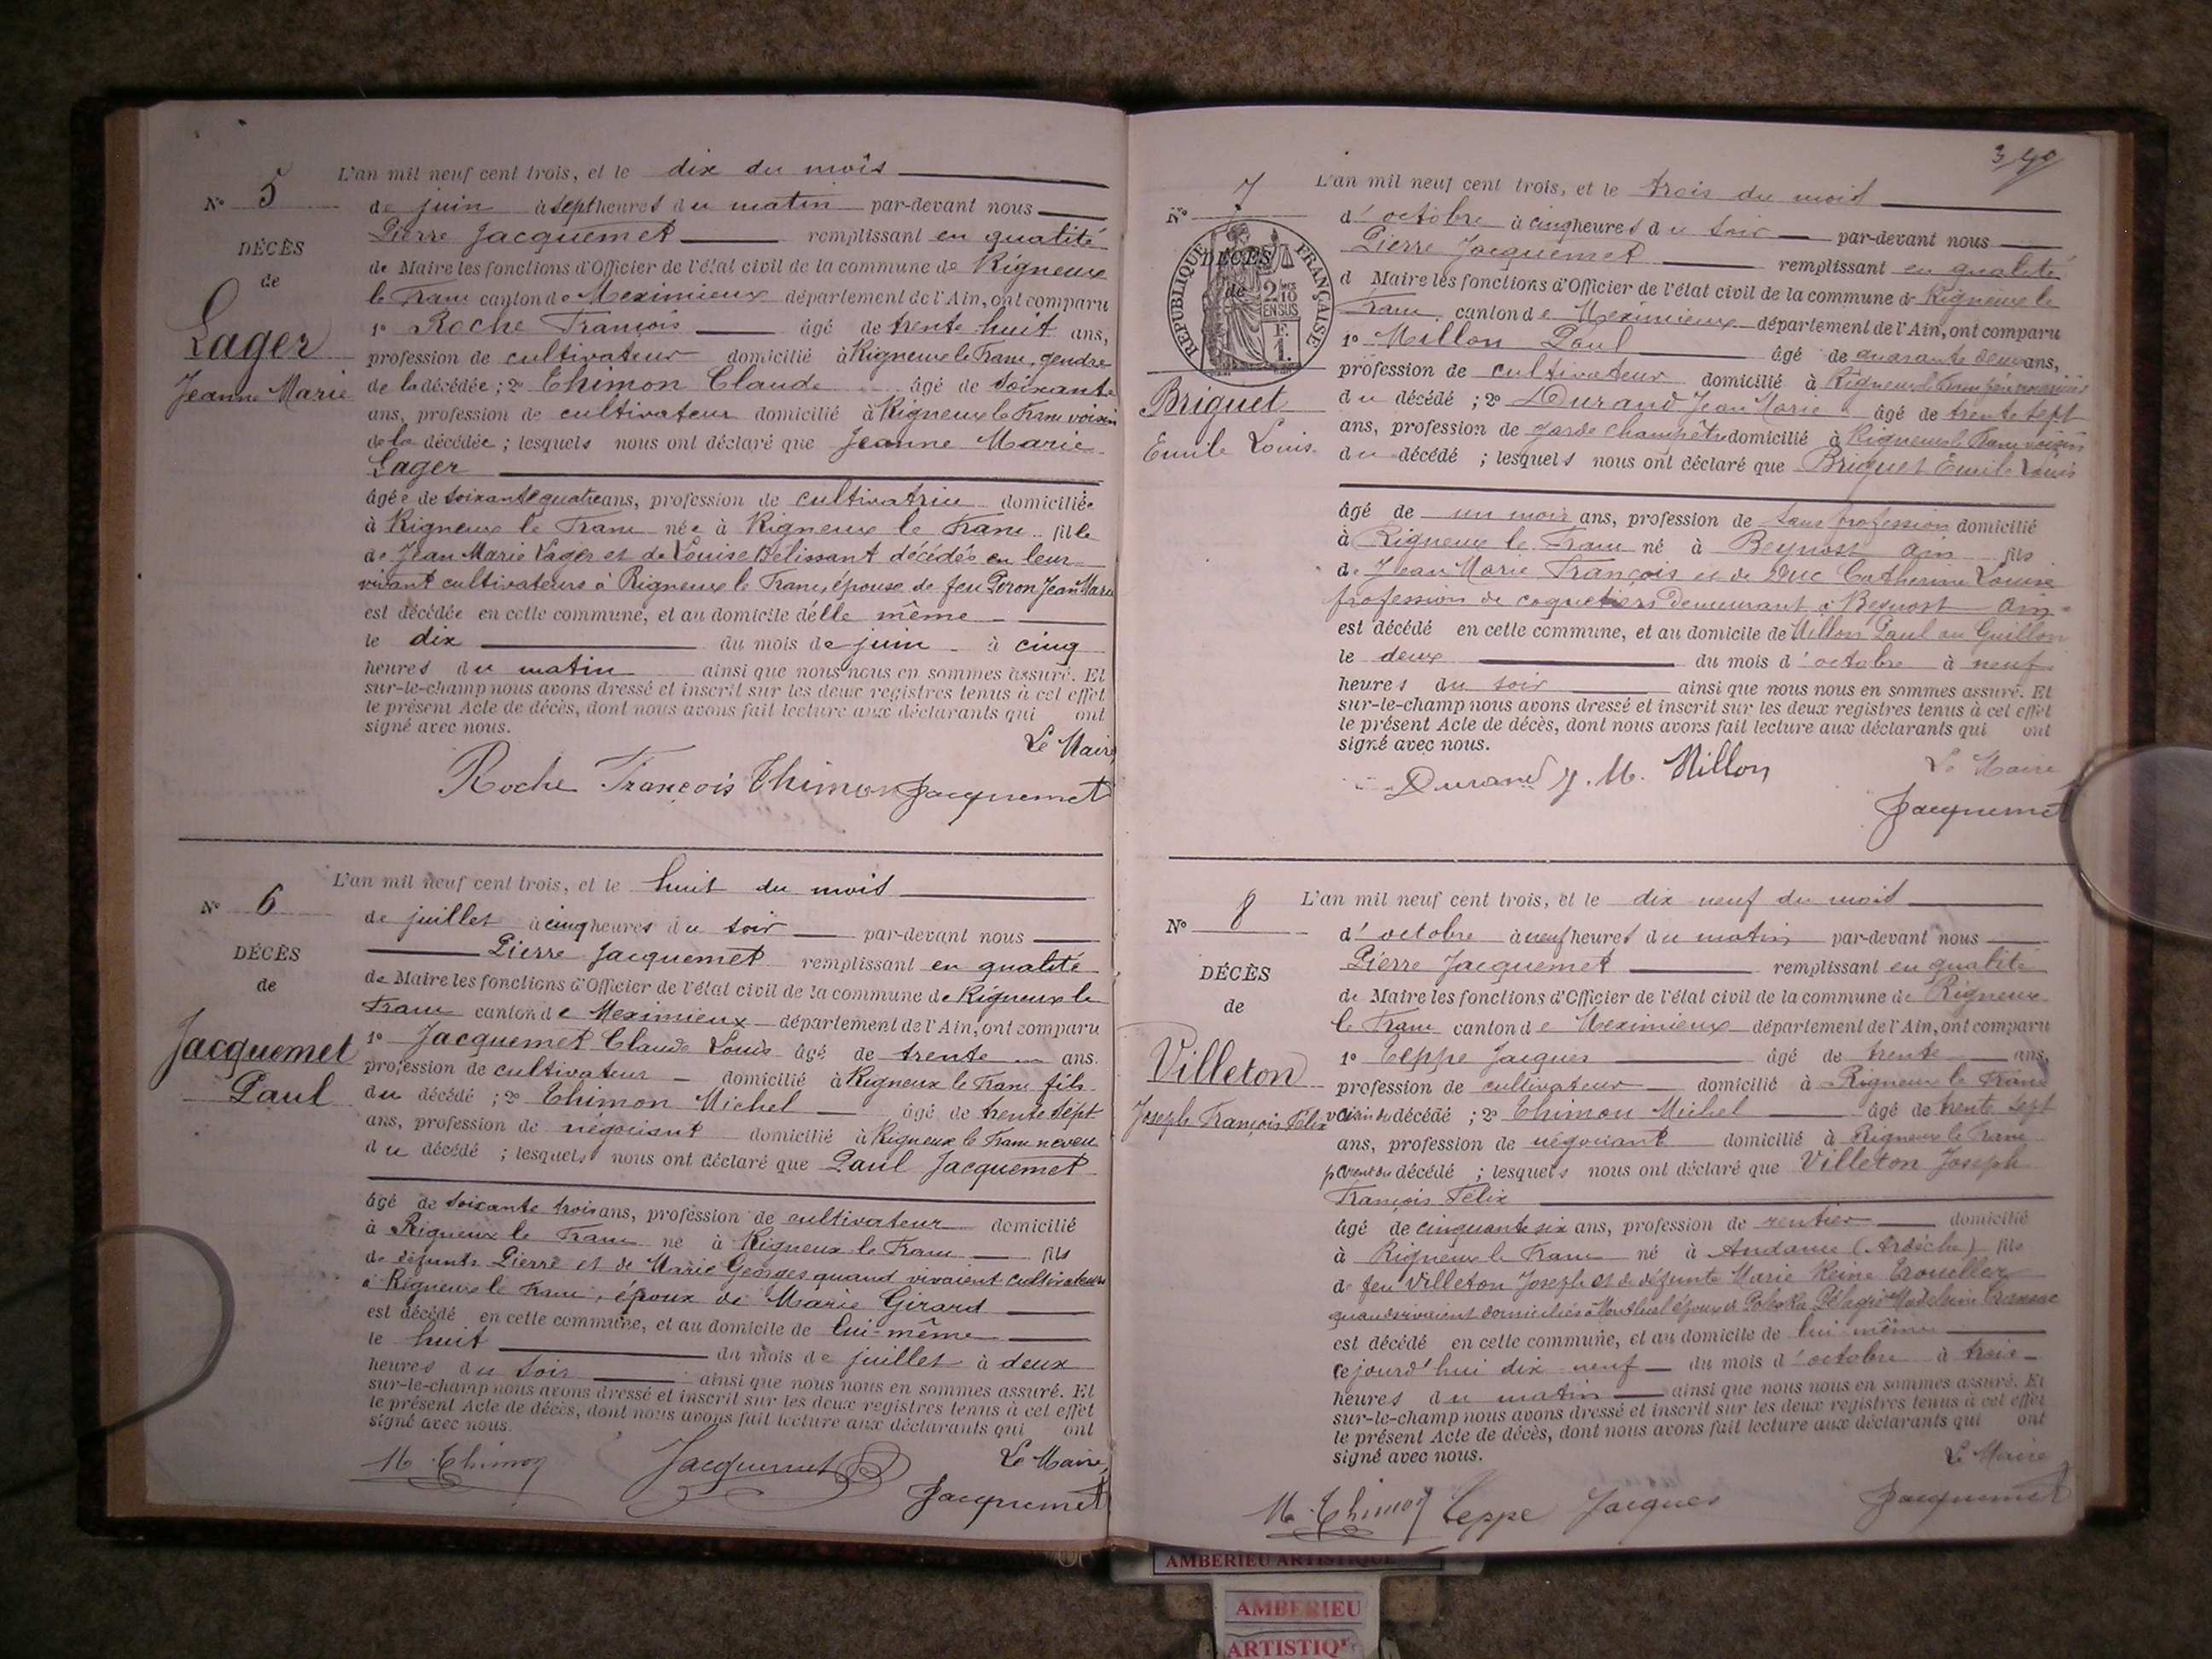 N° 5
DÉCÈS
de
Lager
Jeanne Marie
L'an mil neuf cent trois, et le dix du mois
de juin à sept heures du matin par-devant nous
Pierre Jacquemet remplissant en qualité
de Maire les fonctions d'Officier de l'état civil de la commune de Rigneux
le Franc canton de Meximieux département de l'Ain, ont comparu
1° Roche François âgé de trente huit ans,
profession de cultivateur domicilié à Rigneux le Franc, gendre
de la décédée ; 2° Thimon Claude âgé de soixante
ans, profession de cultivateur domicilié à Rigneux le Franc voisin
de la décédée ; lesquels nous ont déclaré que Jeanne Marie
Lager
âgée de soixante quatre ans, profession de cultivatrice domiciliée
à Rigneux le Franc née à Rigneux le Franc fille
de Jean Marie Lager et de Louise Bélissant décédés en leur
vivant cultivateurs à Rigneux le Franc, épouse de feu Peron Jean Marie
est décédée en cette commune, et au domicile d'elle même
le dix du mois de juin à cinq
heures du matin ainsi que nous nous en sommes assuré. Et
sur-le-champ nous avons dressé et inscrit sur les deux registres tenus à cet effet
le présent Acte de décès, dont nous avons fait lecture aux déclarants qui ont
signé avec nous.
Le Maire
Roche François Thimon Jacquemet
N° 6
DÉCÈS
de
Jacquemet
Paul
L'an mil neuf cent trois, et le huit du mois
de juillet à cinq heures du soir par-devant nous
Pierre Jacquemet remplissant en qualité
de Maire les fonctions d'Officier de l'état civil de la commune de Rigneux le
Franc canton de Meximieux département de l'Ain, ont comparu
1° Jacquemet Claude Louis âgé de trente ans.
profession de cultivateur domicilié à Rigneux le Franc fils
du décédé ; 2° Thimon Michel âgé de trente sept
ans, profession de négociant domicilié à Rigneux le Franc neveu
du décédé ; lesquels nous ont déclaré que Paul Jacquemet
âgé de soixante trois ans, profession de cultivateur domicilié
à Rigneux le Franc né à Rigneux le Franc fils
de défunts Pierre et de Marie Georges quand vivaient cultivateurs
à Rigneux le Franc, époux de Marie Girard
est décédé en cette commune, et au domicile de lui-même
le huit du mois de juillet à deux
heures du soir ainsi que nous nous en sommes assuré. Et
sur-le-champ nous avons dressé et inscrit sur les deux registres tenus à cet effet
le présent Acte de décès, dont nous avons fait lecture aux déclarants qui ont
signé avec nous.
Le Maire,
M Thimon Jacquemet Jacquemet
N° 7
DÉCÈS
de
RÉPUBLIQUE FRANÇAISE
2/10 EN SUS
F. 1.
Briguet
Emile Louis
L'an mil neuf cent trois, et le trois du mois
d'octobre à cinq heures du soir par-devant nous
Pierre Jacquemet remplissant en qualité
d Maire les fonctions d'Officier de l'état civil de la commune de Rigneux le
Franc canton de Meximieux département de l'Ain, ont comparu
1° Millon Paul âgé de quarante deux ans,
profession de cultivateur domicilié à Rigneux le Franc
du décédé ; 2° Durand Jean Marie âgé de trente sept
ans, profession de garde champêtre domicilié à Rigneux le Franc voisin
du décédé ; lesquels nous ont déclaré que Briguet Emile Louis
âgé de un mois ans, profession de sans profession domicilié
à Rigneux le Franc né à Beynost Ain fils
de Jean Marie François et de Duc Catherine Louise
profession de coquetiers demeurant à Beynost Ain
est décédé en cette commune, et au domicile de Millon Paul au Guillon
le deux du mois d'octobre à neuf
heures du soir ainsi que nous nous en sommes assuré. Et
sur-le-champ nous avons dressé et inscrit sur les deux registres tenus à cet effet
le présent Acte de décès, dont nous avons fait lecture aux déclarants qui ont
signé avec nous.
Le Maire
Durand J. M. Millon
Jacquemet
N° 8
DÉCÈS
de
Villeton
Joseph François Félix
L'an mil neuf cent trois, et le dix neuf du mois
d'octobre à neuf heures du matin par-devant nous
Pierre Jacquemet remplissant en qualité
de Maire les fonctions d'Officier de l'état civil de la commune de Rigneux
le Franc canton de Meximieux département de l'Ain, ont comparu
1° Teppe Jacques âgé de trente ans,
profession de cultivateur domicilié à Rigneux le Franc
voisin du décédé ; 2° Thimon Michel âgé de trente sept
ans, profession de négociant domicilié à Rigneux le Franc
parent du décédé ; lesquels nous ont déclaré que Villeton Joseph
François Félix
âgé de cinquante six ans, profession de rentier domicilié
à Rigneux le Franc né à Andance (Ardèche) fils
de feu Villeton Joseph et de défunte Marie Reine Trouiller
quand vivaient domiciliés à Montluel époux de Pélagie Madeleine
est décédé en cette commune, et au domicile de lui même
cejourd'hui dix neuf du mois d'octobre à trois
heures du matin ainsi que nous nous en sommes assuré. Et
sur-le-champ nous avons dressé et inscrit sur les deux registres tenus à cet effet
le présent Acte de décès, dont nous avons fait lecture aux déclarants qui ont
signé avec nous.
Le Maire
M. Thimon Teppe Jacques Jacquemet
AMBERIEU ARTISTIQUE
AMBERIEU
ARTISTIQ